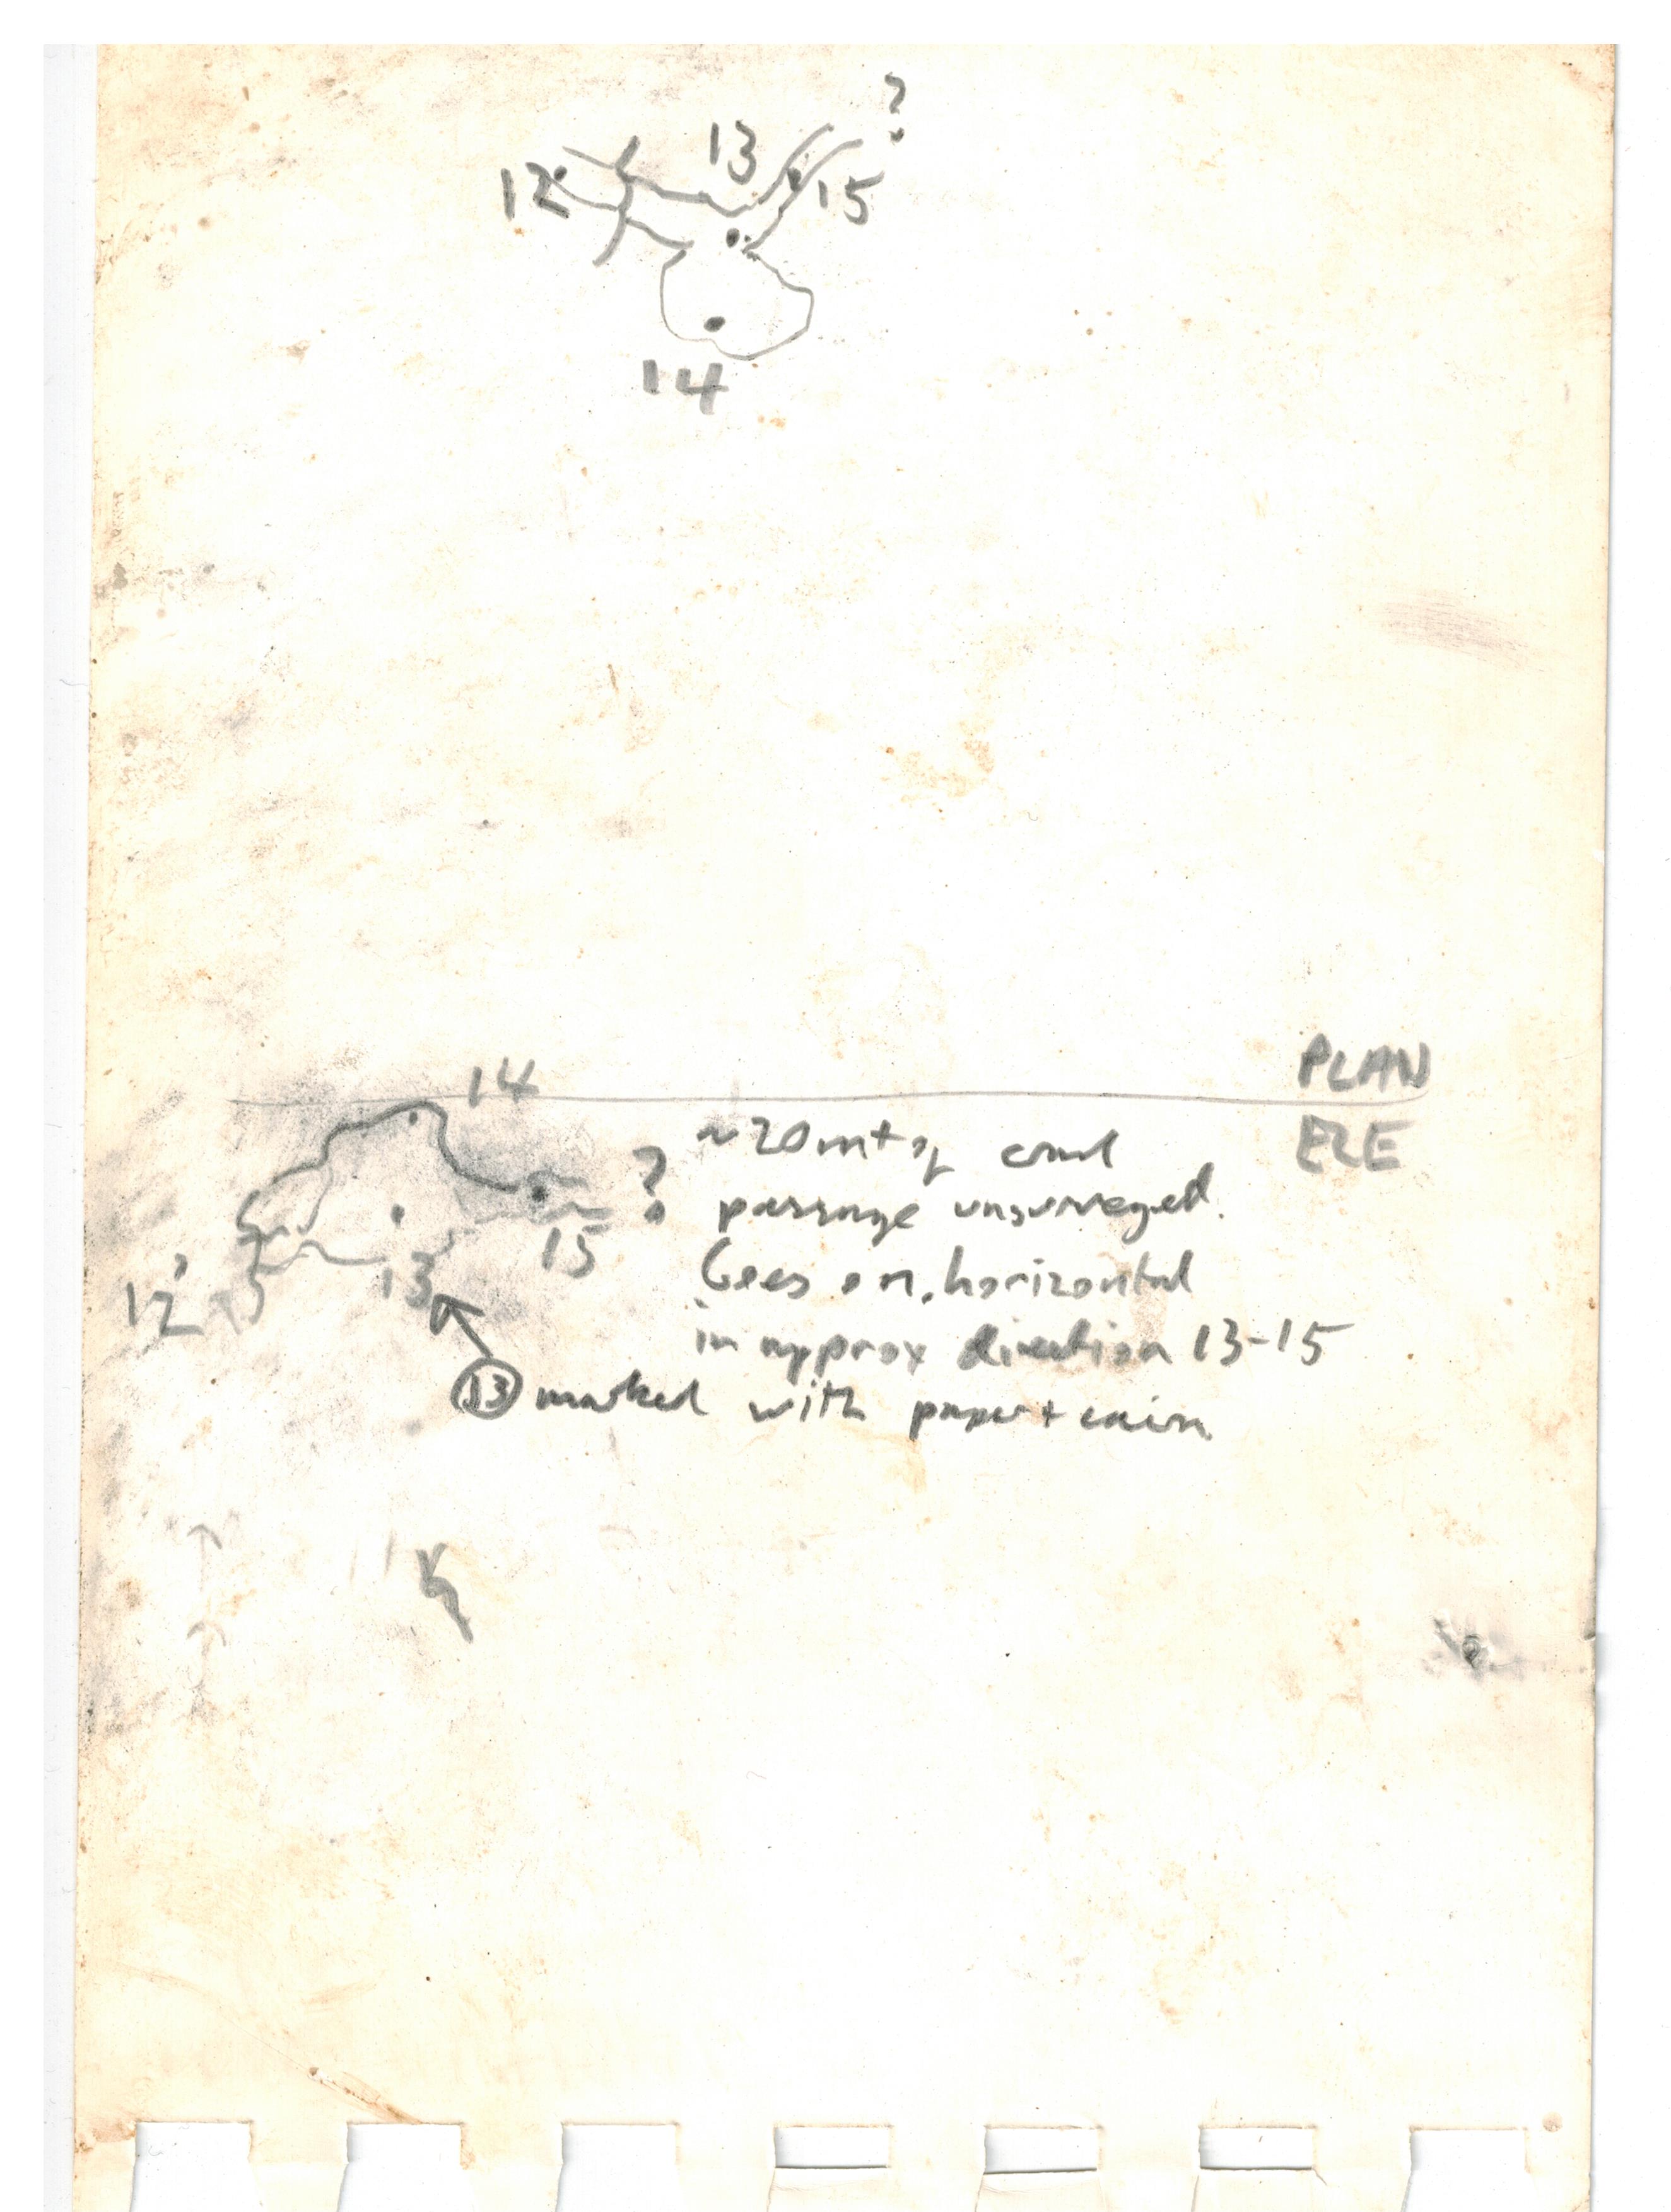 ?
13
12
15
14
PLAN
14
ELE
~20m+ of crawl
?
passage unsurveyed.
15
Goes on, horizontal
12
13
in approx direction 13-15
13 marked with paper + cairn